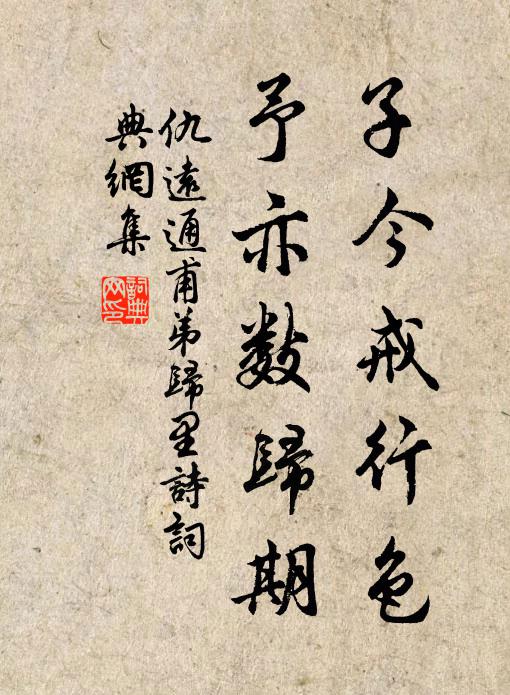 子今戒行色
予亦數歸期
仇遠通甫弟歸里詩詞
典網集
詞典
网印